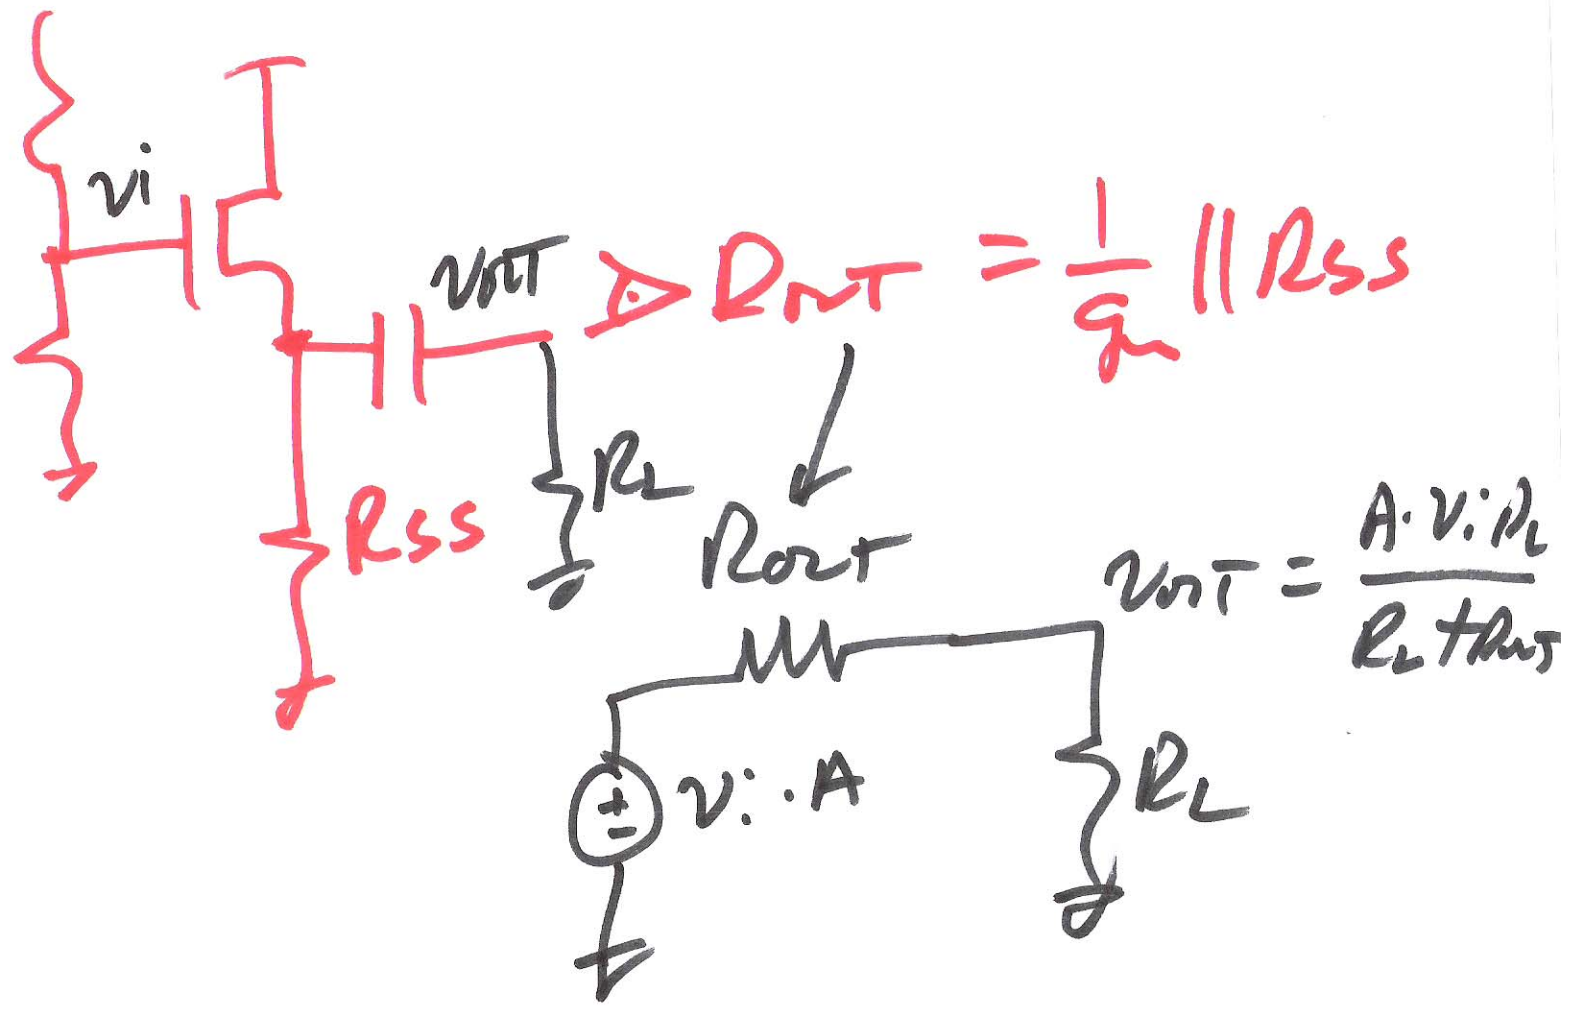 vi
vout
Rout = 1/gm || Rss
RL
Rss
Rout
vout = A·Vi RL / RL + Rout
+
-
vi · A
RL